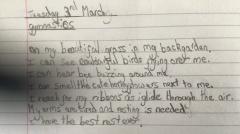 Tuesday 3rd March
gymnastics
on my beautiful grass in my backgardan.
I can see colourful birds flying over me.
I can hear bee buzzing around me.
I can smell the cute honeyflowers next to me.
I reach for my ribbons as i glide through the air.
My arms are tired and resting is needed.
I have the best rest ever.